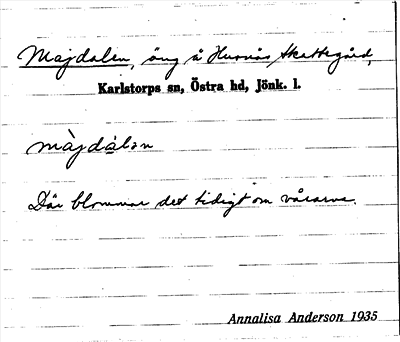 Majdalen, äng å Hurnäs Skattegård,
Karlstorps sn, Östra hd, Jönk. l.
màjdálən
Där blommar det tidigt om vårarne.
Annalisa Anderson 1935